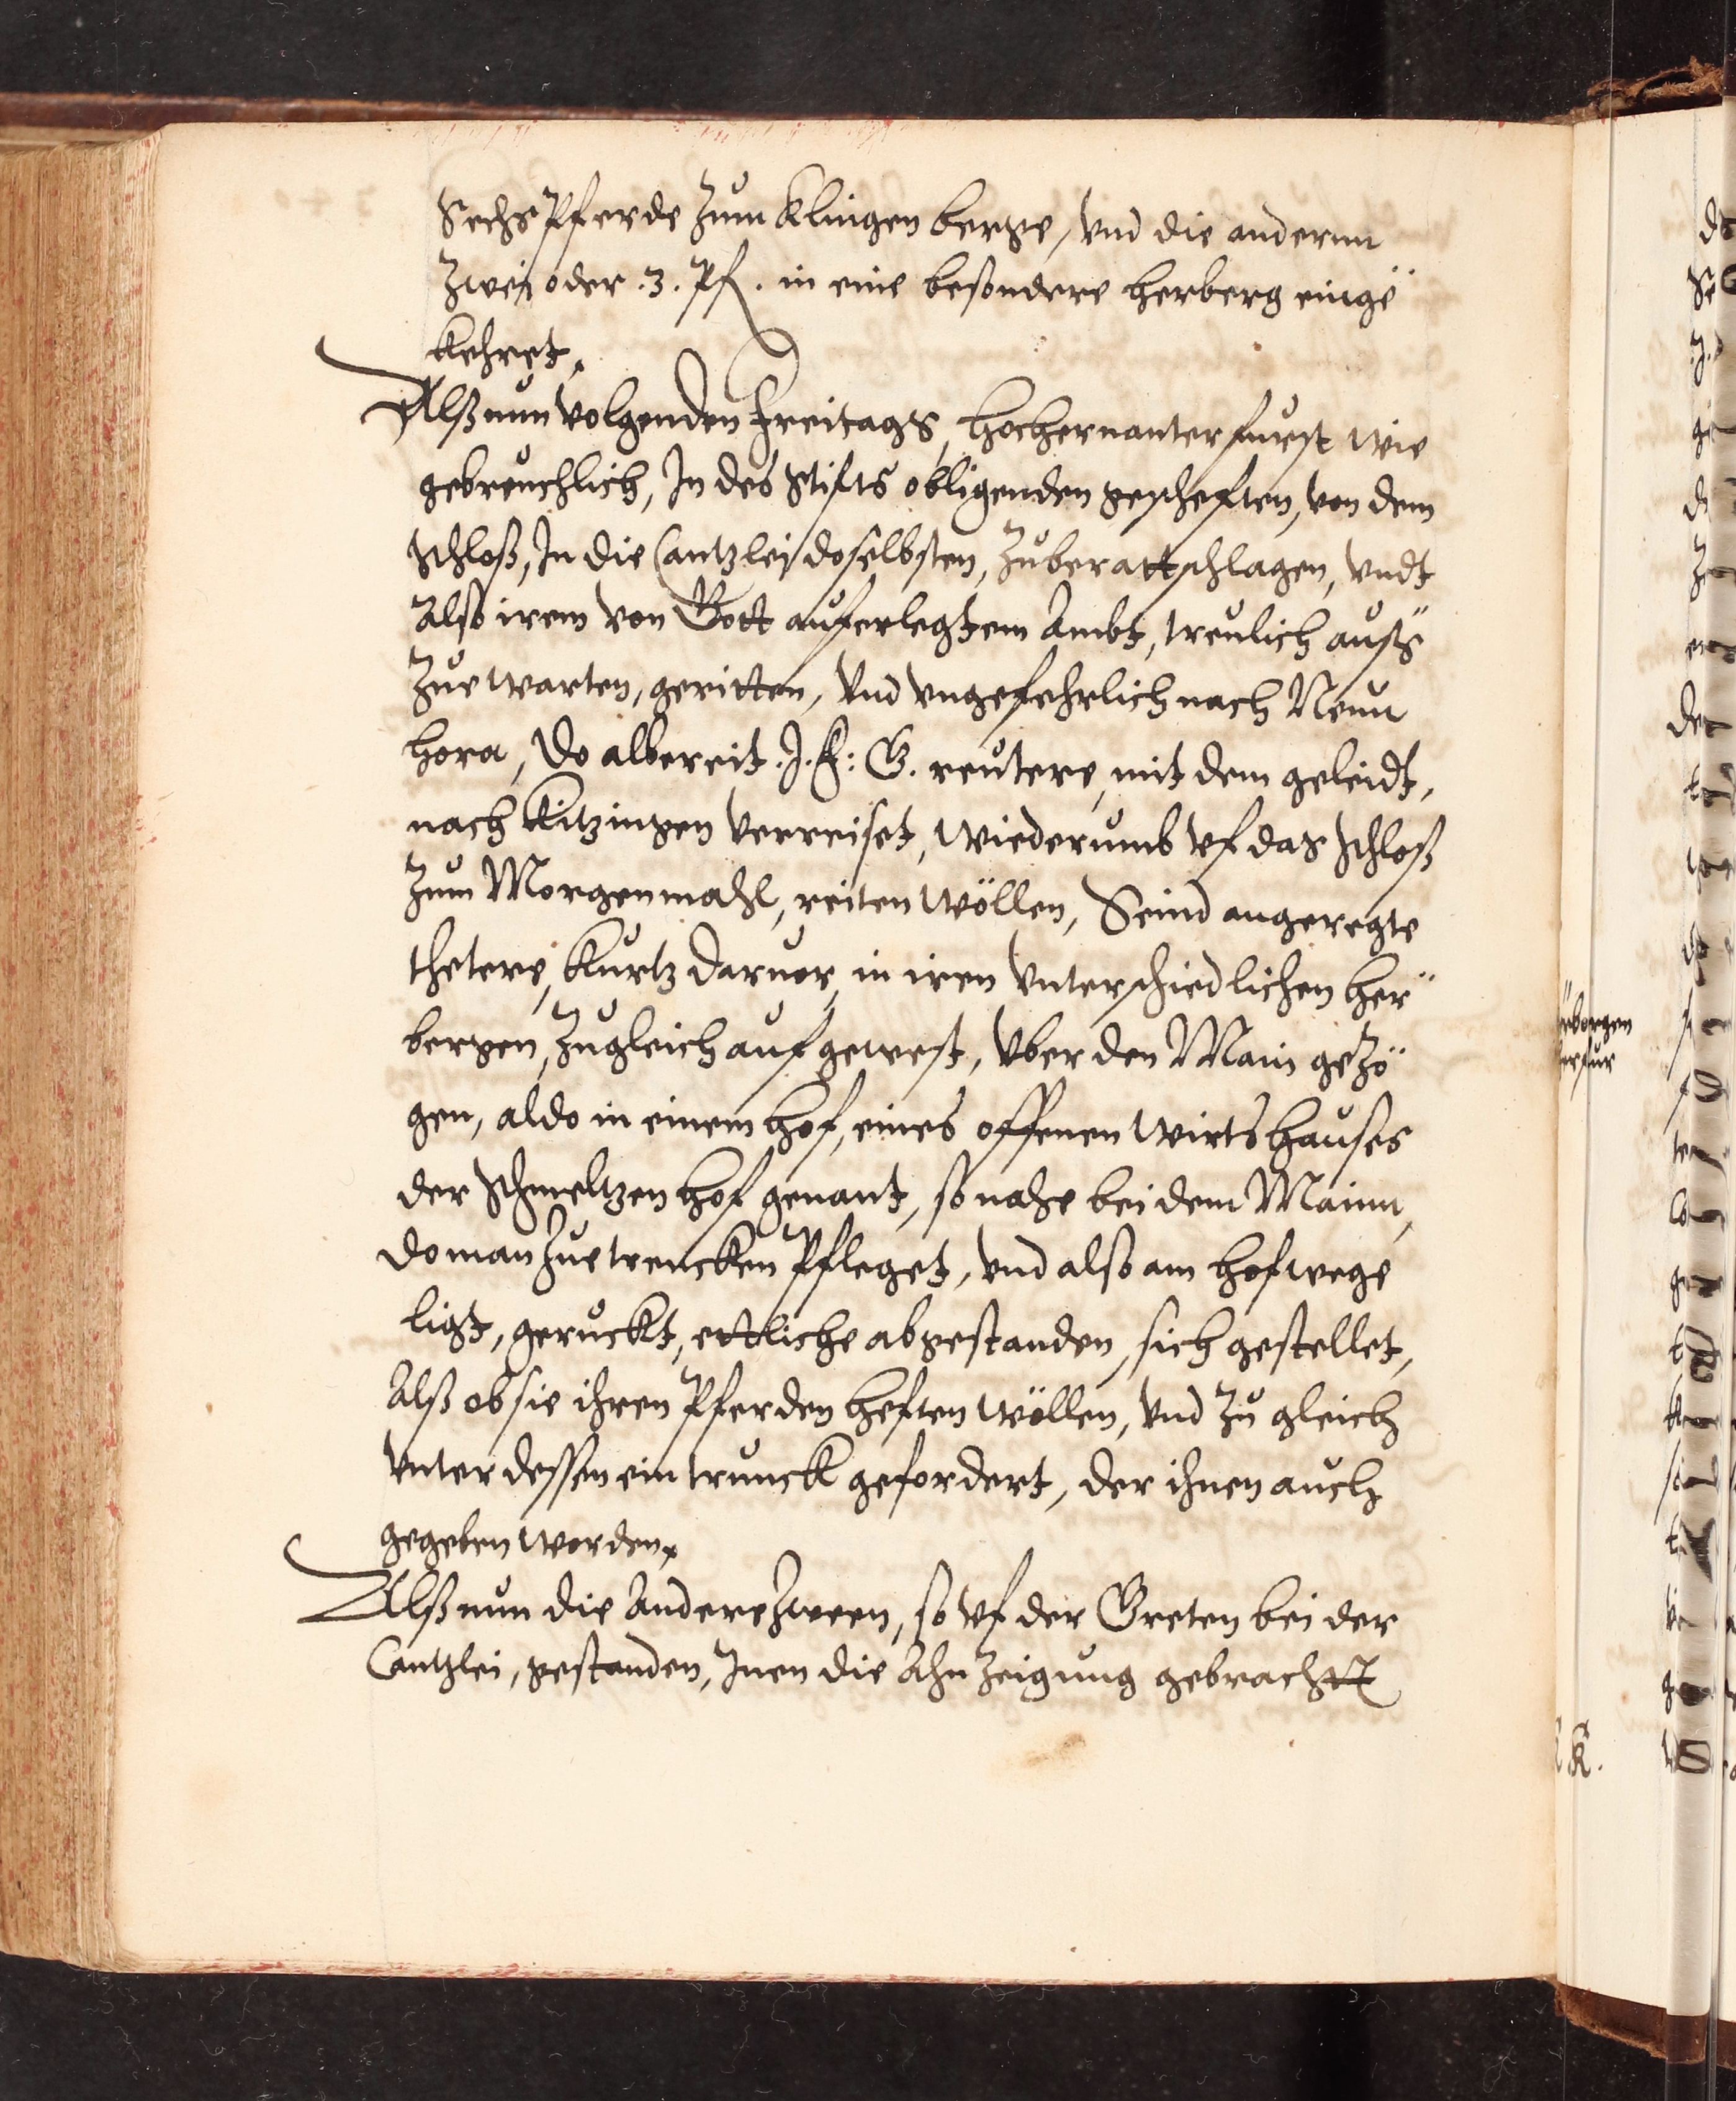 Sechs Pferde zum Klingenberge, vnd die andernn
zwej oder .3. Pf. in eine besondere herberg einge"
kehret,
Alß nun volgenden Freitags, hochernanter furst wie
gebreuchlich, In des Stifts obligenden gescheften, von dem
Schloß, In die Cantzlej doselbsten, zuberattschlagen, vndt
Also irem von Gott auferlegtem Ambt, treulich auß"
zue warten, geritten, Vnd vngefehrlich nach Neun
hora, Do albereit .J. F: G. reutere, mit dem geleidt,
nach Kitzingen verreiset, wiederumb vf das Schloß
zum Morgenmahl, reiten wöllen, Seind angeregte
thetere, kurtz daruor, in iren vnterschiedlichen her"
bergen, zugleich auf gewest, vber den Main gezo"
gen, aldo in einem hof, eines offenen wirtshauses
der Schmeltzenhof genant, so nahe bei dem Mainn,
do man zue trencken Pfleget, vnd also am hofwege
ligt, geruckt, ettliche abgestanden, sich gestellet,
Alß ob sie ihren Pferden heften wöllen, vnd zu gleich
vnter dessen ein trunck gefordert, der ihnen auch
gegeben worden,
Alß nun die Andere zween, so vf der Greten bei der
Cantzlei, gestanden, Inen die Ahnzeigung gebrachtt